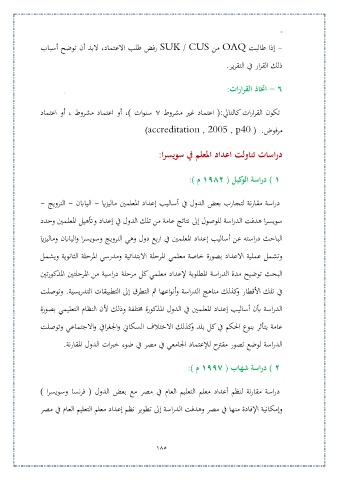 - إذا طالبت OAQ من SUK / CUS رفض طلب الاعتماد، لابد أن توضح أسباب
ذلك القرار في التقرير.
٦ - اتخاذ القرارات:
تكون القرارات كالتالي:( اعتماد غير مشروط ٧ سنوات )، أو اعتماد مشروط ، أو اعتماد
مرفوض. ( accreditation , 2005 , p40)
دراسات تناولت اعداد المعلم في سويسرا:
١ ) دراسة الوكيل ( ١٩٨٢ م ):
دراسة مقارنة لتجارب بعض الدول في أساليب إعداد المعلمين ماليزيا - اليابان - النرويج -
سويسرا هدفت الدراسة للوصول إلى نتائج عامة من تلك الدول في إعداد وتأهيل المعلمين وحدد
الباحث دراسته عن أساليب إعداد المعلمين في اربع دول وهي النرويج وسويسرا واليابان وماليزيا
وتشمل عملية الاعداد بصورة خاصة معلمي المرحلة الابتدائية ومدرسي المرحلة الثانوية ويشمل
البحث توضيح مدة الدراسة المطلوبة لإعداد معلمي كل مرحلة دراسية من المرحلتين المذكورتين
في تلك الأقطار وكذلك مناهج الدراسة وأنواعها ثم التطرق إلى التطبيقات التدريسية. وتوصلت
الدراسة بأن أساليب إعداد المعلمين في الدول المذكورة مختلفة وذلك لأن النظام التعليمي بصورة
عامة يتأثر بنوع الحكم في كل بلد وكذلك الاختلاف السكاني والجغرافي والاجتماعي وتوصلت
الدراسة لوضع تصور مقترح للإعتماد الجامعي في مصر في ضوء خبرات الدول المقارنة.
٢ ) دراسة شهاب ( ١٩٩٧ م ):
دراسة مقارنة لنظم أعداد معلم التعليم العام في مصر مع بعض الدول ( فرنسا وسويسرا )
وإمكانية الإفادة منها في مصر وهدفت الدراسة إلى تطوير نظم إعداد معلم التعليم العام في مصر
١٨٥